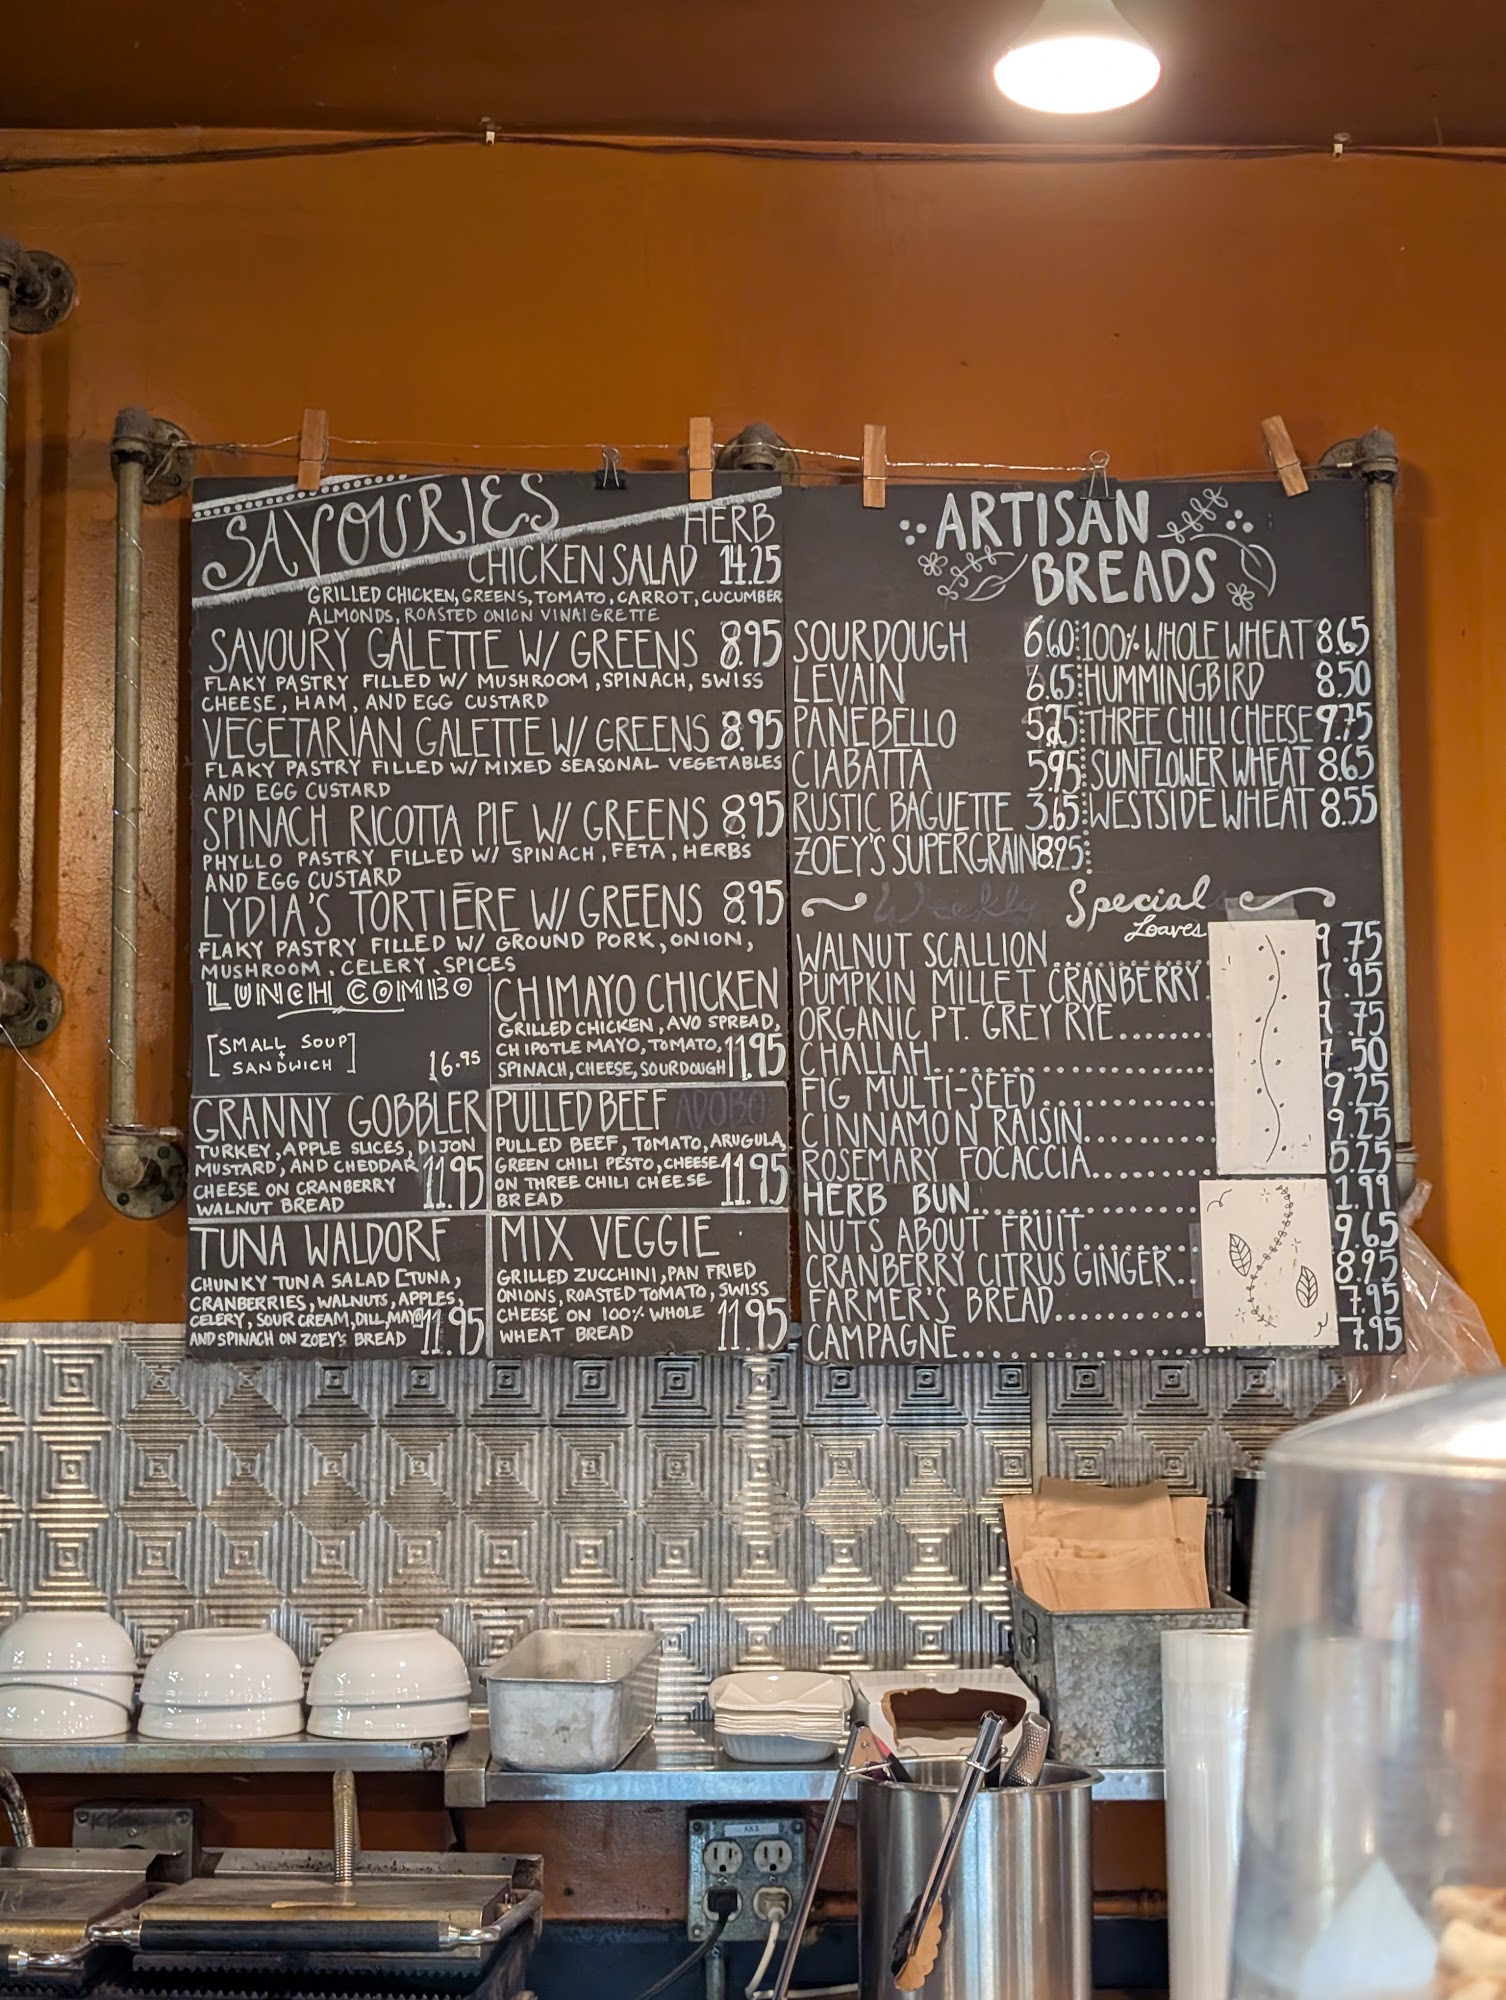 SAVOURIES
HERB
CHICKEN SALAD 14.25
GRILLED CHICKEN, GREENS, TOMATO, CARROT, CUCUMBER
ALMONDS, ROASTED ONION VINAIGRETTE
SAVOURY GALETTE W/ GREENS 8.95
FLAKY PASTRY FILLED W/ MUSHROOM, SPINACH, SWISS
CHEESE, HAM, AND EGG CUSTARD
VEGETARIAN GALETTE W/ GREENS 8.95
FLAKY PASTRY FILLED W/ MIXED SEASONAL VEGETABLES
AND EGG CUSTARD
SPINACH RICOTTA PIE W/ GREENS 8.95
PHYLLO PASTRY FILLED W/ SPINACH, FETA, HERBS
AND EGG CUSTARD
LYDIA'S TORTIERE W/ GREENS 8.95
FLAKY PASTRY FILLED W/ GROUND PORK, ONION,
MUSHROOM, CELERY, SPICES
LUNCH COMBO
[SMALL SOUP
+
SANDWICH] 16.95
CHIMAYO CHICKEN
GRILLED CHICKEN, AVO SPREAD,
CHIPOTLE MAYO, TOMATO,
SPINACH, CHEESE, SOURDOUGH 11.95
GRANNY GOBBLER
TURKEY, APPLE SLICES, DIJON
MUSTARD, AND CHEDDAR
CHEESE ON CRANBERRY 11.95
WALNUT BREAD
PULLED BEEF ADOBO
PULLED BEEF, TOMATO, ARUGULA,
GREEN CHILI PESTO, CHEESE
ON THREE CHILI CHEESE 11.95
BREAD
TUNA WALDORF
CHUNKY TUNA SALAD [TUNA,
CRANBERRIES, WALNUTS, APPLES,
CELERY, SOUR CREAM, DILL, MAYO]
AND SPINACH ON ZOEY'S BREAD 11.95
MIX VEGGIE
GRILLED ZUCCHINI, PAN FRIED
ONIONS, ROASTED TOMATO, SWISS
CHEESE ON 100% WHOLE
WHEAT BREAD 11.95
ARTISAN
BREADS
SOURDOUGH 6.60
LEVAIN 6.65
PANEBELLO 5.25
CIABATTA 5.95
RUSTIC BAGUETTE 3.65
ZOEY'S SUPERGRAIN 8.25
100% WHOLE WHEAT 8.65
HUMMINGBIRD 8.50
THREE CHILI CHEESE 9.75
SUNFLOWER WHEAT 8.65
WESTSIDE WHEAT 8.55
Weekly Specials
Loaves
WALNUT SCALLION.......... 9.75
PUMPKIN MILLET CRANBERRY. .95
ORGANIC PT. GREY RYE....... .75
CHALLAH.................... 7.50
FIG MULTI-SEED............. 9.25
CINNAMON RAISIN.......... 9.25
ROSEMARY FOCACCIA....... .25
HERB BUN.................. 1.99
NUTS ABOUT FRUIT......... 9.65
CRANBERRY CITRUS GINGER.. 8.95
FARMER'S BREAD........... 7.95
CAMPAGNE................. 7.95